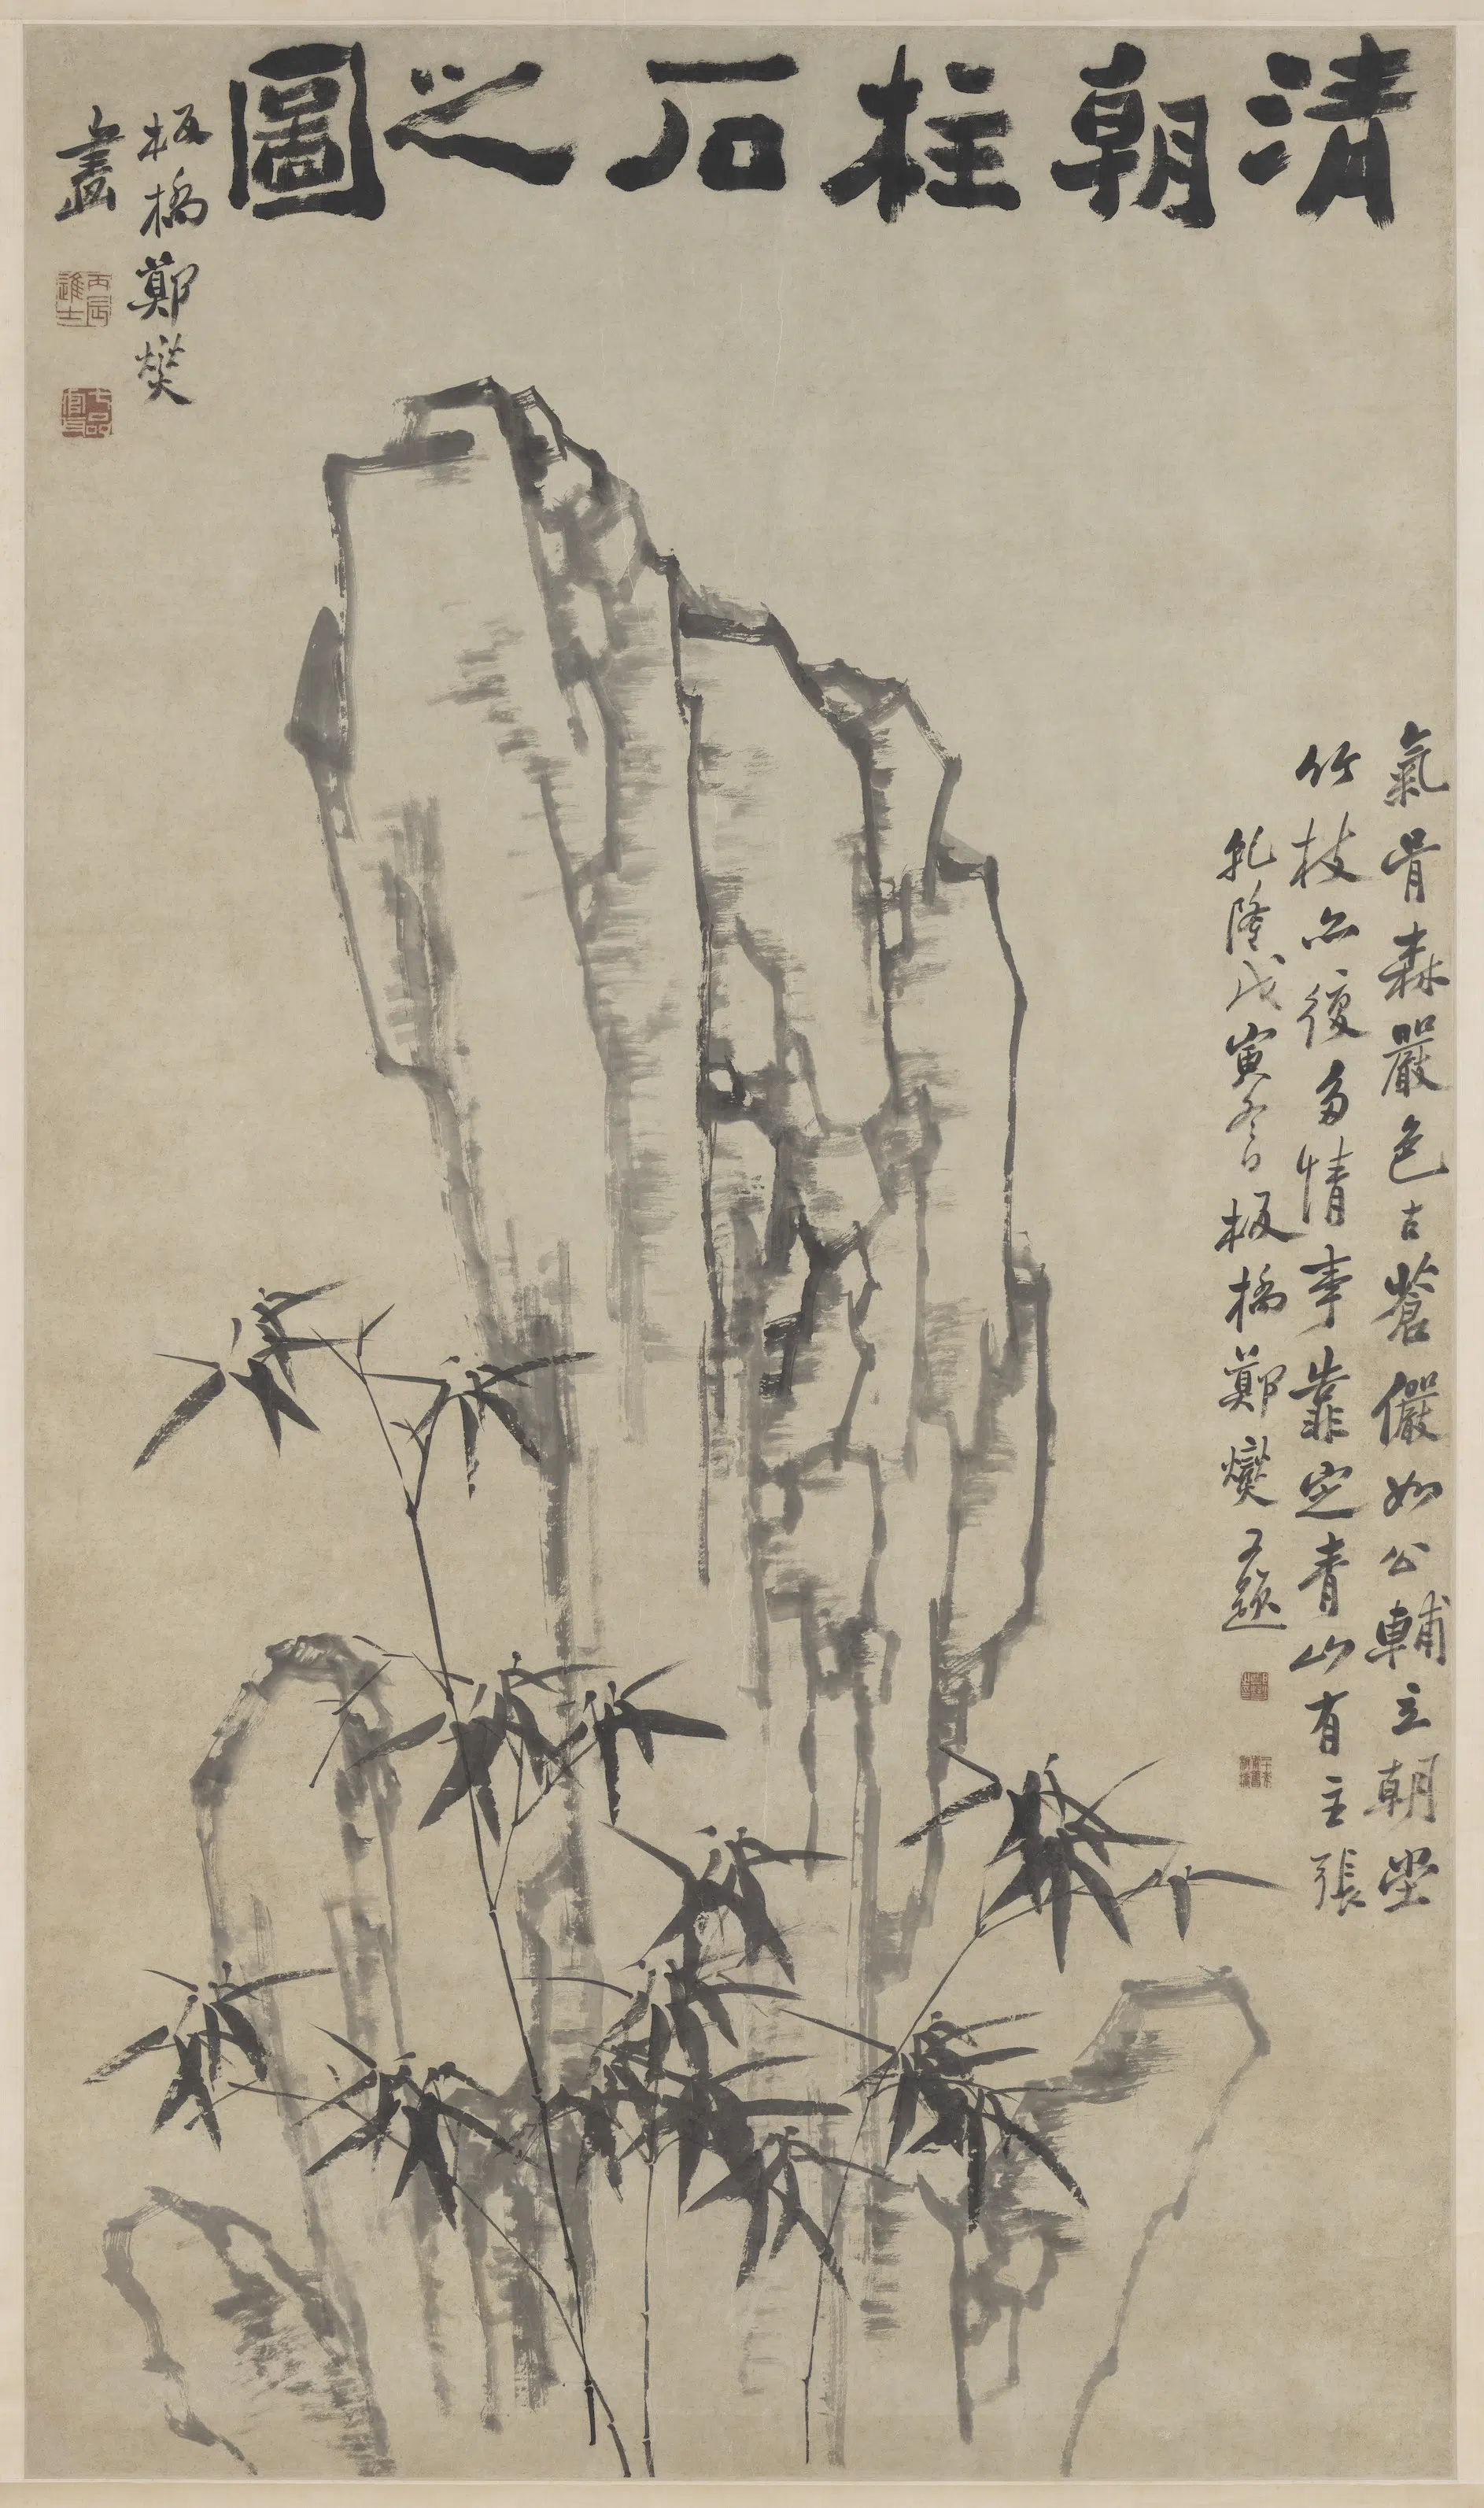 清朝柱石之圖
板橋鄭燮
畫
丙辰進士
七品官耳
氣骨森嚴色古蒼儼如公輔立朝堂
竹枝亦復多情事靠定青山有主張
乹隆戊寅冬日板橋鄭燮又題